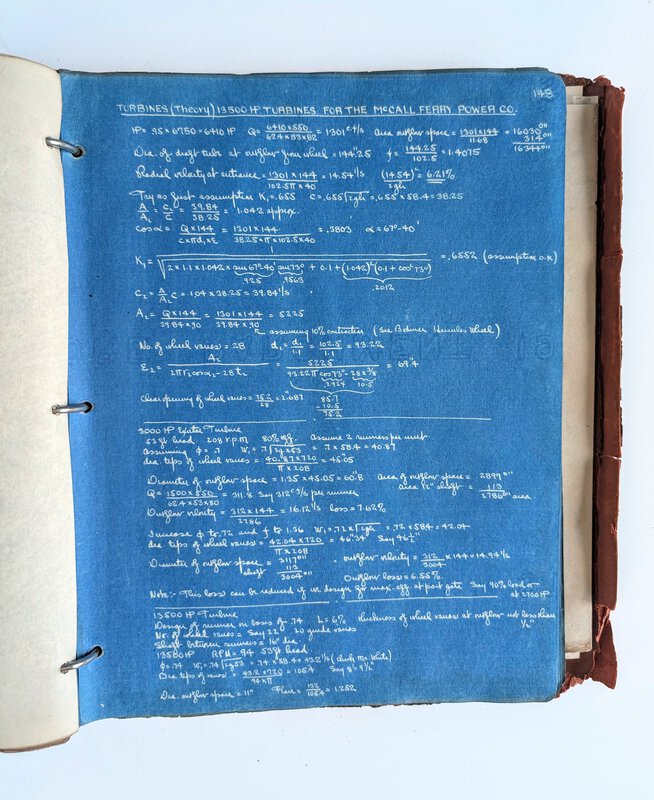 148
TURBINES (Theory) 13500 HP TURBINES FOR THE McCALL FERRY POWER CO.
HP = .95 × 6750 = 6410 HP Q = 6410×550 / 62.4×53×82 = 1301 c.f/s Area outflow space = 1301×144 / 11.68 = 16030□"
314□"
16344□"
Dia. of draft tube at outflow from wheel = 144.25 f = 144.25 / 102.5 = 1.4075
Radial velocity at entrance = 1301 × 144 / 102.5π × 40 = 14.54'/s (14.54)² / 2gh = 6.21%
Try as first assumption K₁ = .655 c = .655√2gh = .655 × 58.4 = 38.25
A/A₂ = C₂/C = 39.84 / 38.25 = 1.042 approx.
cos α = Q × 144 / c×πd₁×e = 1301 × 144 / 38.25×π×102.5×40 = .3803 α = 67°-40'
K₁ = √ 1 / 2×1.1×1.042× sin 67°-40' sin 73° + 0.1 + (1.042)² (0.1 + cos² 73°) = .6552 (assumption O.K)
.925 .9563 .2012
C₂ = A/A₂ C = 1.04 × 38.25 = 39.84'/s
A₂ = Q×144 / 39.84×.90 = 1301×144 / 39.84×.90 = 5225
assuming 10% contraction (see Bodmer Hercules Wheel)
No. of wheel vanes = 28 d₂ = d₁ / 1.1 = 102.5 / 1.1 = 93.22
E₂ = A₂ / 2πr₂ cos α₂ - 28 t₂ = 5225 / 93.22π cos 73° - 28 × 3/8 = 69"4
.2924 10.5
Clear opening of wheel vanes = 75.2 / 28 = 2".687
85.7
-10.5
75.2
3000 HP Exciter Turbine
53 ft head 208 r.p.m 80% eff Assume 2 runners per unit
Assuming φ = .7 W₁ = .7√2g×53 = .7 × 58.4 = 40.87
dia tips of wheel vanes = 40.87×720 / π×208 = 45".05
Diameter of outflow = 1.35 × 45.05 = 60"8 Area of outflow space = 2899□"
Area 12" shaft = 113
2786□" area
Q = 1500×550 / 62.4×53×80 = 311.8 Say 312 c'³/s per runner
Outflow velocity = 312×144 / 2786 = 16.12'/s loss = 7.62%
Increase φ to .72 and f to 1.36 W₁ = .72×√2gh = .72 × 58.4 = 42.04
dia. tips of wheel vanes = 42.04×720 / π×208 = 46"34 Say 46½"
Diameter of outflow space = 3117□" outflow velocity = 312 / 3004 × 144 = 14.94'/s
shaft 113
3004□"
Outflow loss = 6.55%.
Note:- This loss can be reduced if we design for max. eff. at part gate Say 90% load or at 2700 HP
13500 HP Turbine
Design of runner on basis of .74 L = 6% thickness of wheel vanes at outflow not less than ¼"
No. of wheel vanes = Say 22 20 guide vanes
Shaft between runners = 16" dia
13500 HP RPM = 94 53 ft head
φ = .74 W₁ = .74√2g53 = .74 × 58.4 = 43.2'/s (check Mr. White)
Dia tips of vanes = 43.2×720 / 94×π = 105.4 Say 8'-9½"
Dia. outflow space = 11" Flare = 132 / 105.4 = 1.252